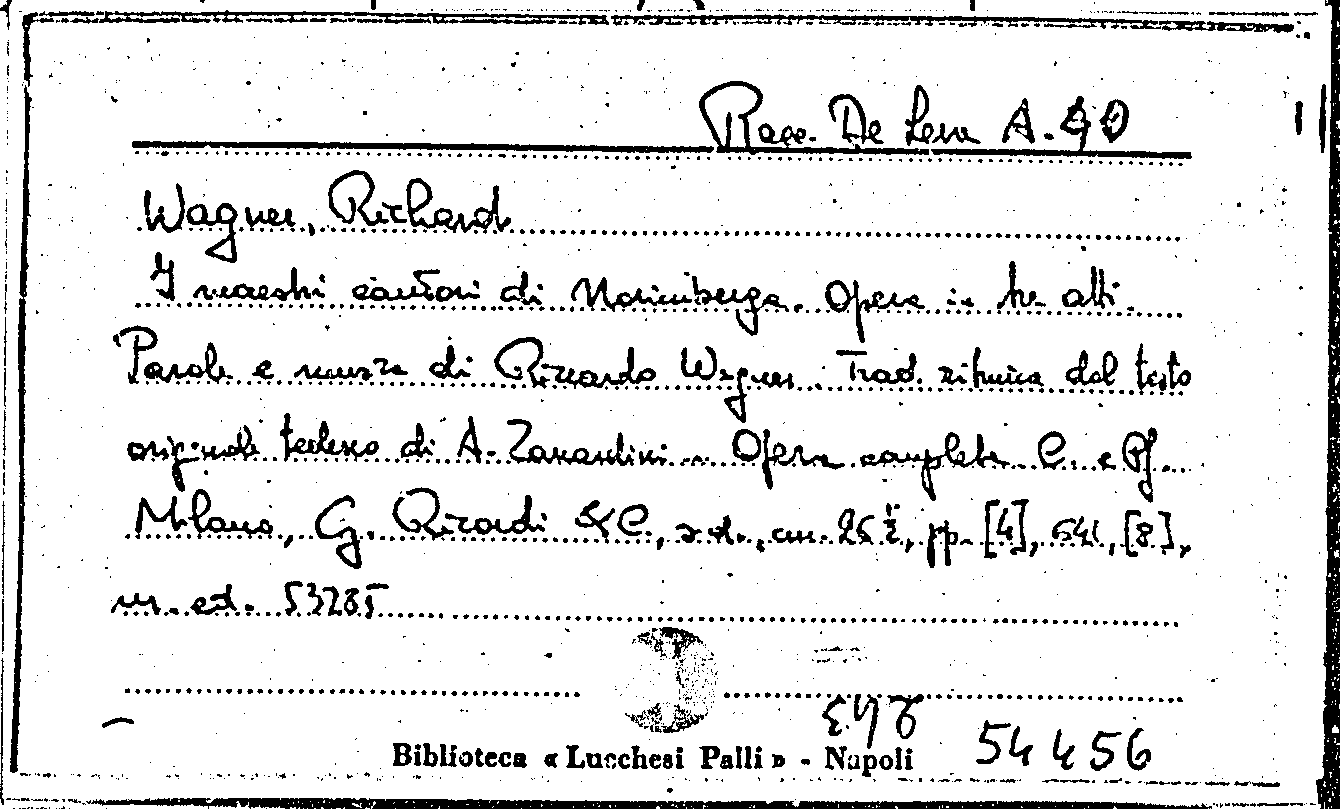 Racc. De Leva A. 40
Wagner, Richard
I maestri cantori di Norimberga. Opera in tre atti.
Parole e musica di Riccardo Wagner. Trad. ritmica dal testo
originale tedesco di A. Zanardini. Opera completa C. e Pf.
Milano, G. Ricordi & C., s.d., cm. 26, pp. [4], 541, [8],
n. ed. 53285
Biblioteca « Lucchesi Palli » - Napoli
54456